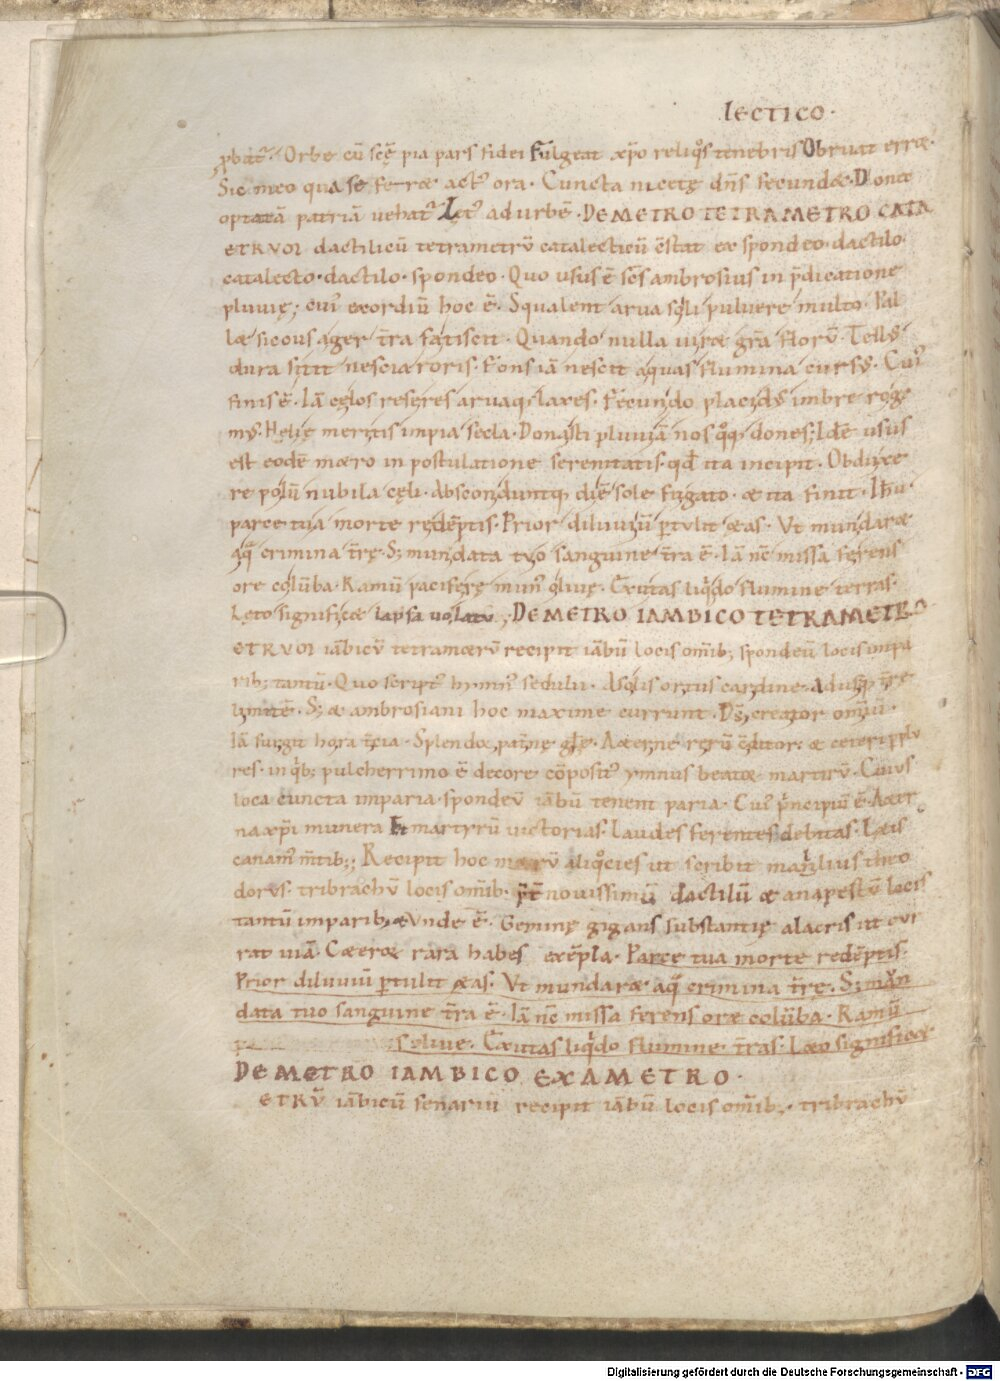 lectico·
ꝓbat᷒· Orbe cū scę̄ pia pars fidei Fulgeat xp̄o reliqͦs tenebris Obruat erroꝛ·
Sic meo qua se feret act᷒ ora· Cuncta nectę dn̄s fecundet· Donec
optatā patriā uehat᷒ Lęt᷒ ad urbē· DE METRO TETRAMETRO CATA
ETRVM dactilicū tetrametrū catalecticū c̄stat ex spondeo· dactilo·
catalecto· dactilo· spondeo· Quo usus ē scs̄ ambrosius in p̄dicatione
pluuię; cui᷒ exordiū hoc ē· Squalent arua soli puluere multo· Pal
let siccus ager t̄ra fatiscit· Quando nulla uiret gr̄a florū· Tell᷒
dura sitit nescia roris· Fons iā nescit aquas flumina curs᷒· Cui᷒
finis ē· Iā cęlos reseres aruaq; laxes· Fecundo placid᷒ imbre roga
m᷒· Helię meritis impia secla· Donasti pluuiā nos qͦq; dones; Idē usus
est eodē metro in postulatione serenitatis· qd̄ ita incipit· Obduxe
re polū nubila cęli· Absconduntq; diē sole fugato· et ita finit· Ih̄u·
parce tua morte redēptis· Prior diluuiū ꝑtulit ętas· Vt mundaret
aqͣ crimina t̄rę· S; mundata tuo sanguine t̄ra ē· Iā nc̄ missa ferens
ore colūba· Ramū paciferę mun᷒ oliuę· Exutas liqͥdo flumine terras·
Lęto significet lapsa uolatu; DE METRO IAMBICO TETRAMETRO
ETRVM iābicū tetrametrū recipit iābū locis om̄ib; spondeū locis inpa
rib; tantū· Quo script᷒ hymn᷒ sedulii· A solis ortus cardine· Adusq; t̄rę
limitē· S; et ambrosiani hoc maxime currunt· Ds̄ creator om̄iū·
Iā surgit hora t̄cia· Splendor patnę gl̄ę· Aeterne rerū c̄ditor· et ceteri ꝑplu
res· in qͥb; pulcherrimo ē decore cōposit᷒ ymnus beatoꝛ martirū· Cuius
loca cuncta inparia spondeū iābū tenent paria· Cui᷒ pͥncipiū ē· Aeter
na xp̄i munera Et martyrū uictorias· Laudes ferentes debitas· Lętis
canam᷒ m̄tib;; Recipit hoc metrū aliqͦcies ut scribit mallius theo
dorus· tribrachū locis om̄ib· p̄t nouissimū dactilū et anapestū locis
tantū inparib; Vnde ē· Geminę gigans substantię alacris ut cur
rat uiā· Ceteroꝛ rara habes exēpla· Parce tua morte redēptis·
Prior diluuiū ꝑtulit ętas· Vt mundaret aqͣ crimina t̄rę· S; mun
data tuo sanguine t̄ra ē· Iā nc̄ missa ferens ore colūba· Ramū
oliue· Exutas liqͥdo flumine t̄ras· Lęto significet
DE METRO IAMBICO EXAMETRO·
ETRV̄ iābicū senariū recipit iābū locis om̄ib;· tribrachū
Digitalisierung gefördert durch die Deutsche Forschungsgemeinschaft · DFG